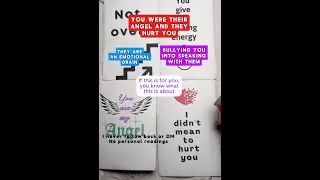 Not
over
You
give
energy
YOU WERE THEIR
ANGEL AND THEY
HURT YOU
THEY ARE
AN EMOTIONAL
DRAIN
BULLYING YOU
INTO SPEAKING
WITH THEM
If this is for you,
you know what
this is about
You
are
my
Angel
I never follow back or DM
No personal readings
I
didn't
mean
to
hurt
you